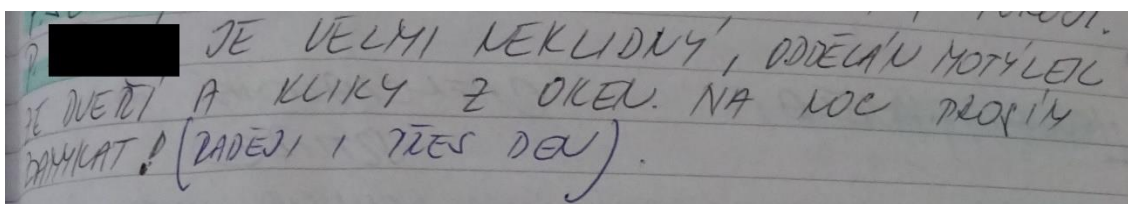 P. JE VELMI NEKLIDNÝ, ODDĚLÁN MOTÝLEK
ZE DVEŘÍ A KLIKY Z OKEN. NA NOC PROSÍM
ZAMYKAT! (RADĚJI I PŘES DEN).